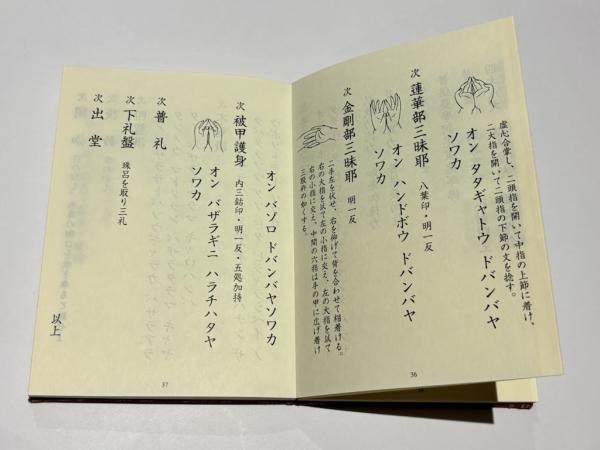 虚心合掌し、二頭指を開いて中指の上節に着け、
二大指を開いて二頭指の下節の文を捻す。
オン タタギャトウ ドバンバヤ
ソワカ
次 蓮華部三昧耶 八葉印・明一反
オン ハンドボウ ドバンバヤ
ソワカ
次 金剛部三昧耶 明一反
二手左を伏せ、右を仰げて背を合わせて相着ける。
右の大指を以て左の小指に交え、左の大指を以て
右の小指に交え、中間の六指は手の甲に広げ着け
三股杵の如くする。
36
オン バゾロ ドバンバヤソワカ
次 被甲護身 内三鈷印・明一反・五処加持
オン バザラギニ ハラチハタヤ
ソワカ
次 普礼
次 下礼盤 珠呂を取り三礼
次 出堂
以上
37